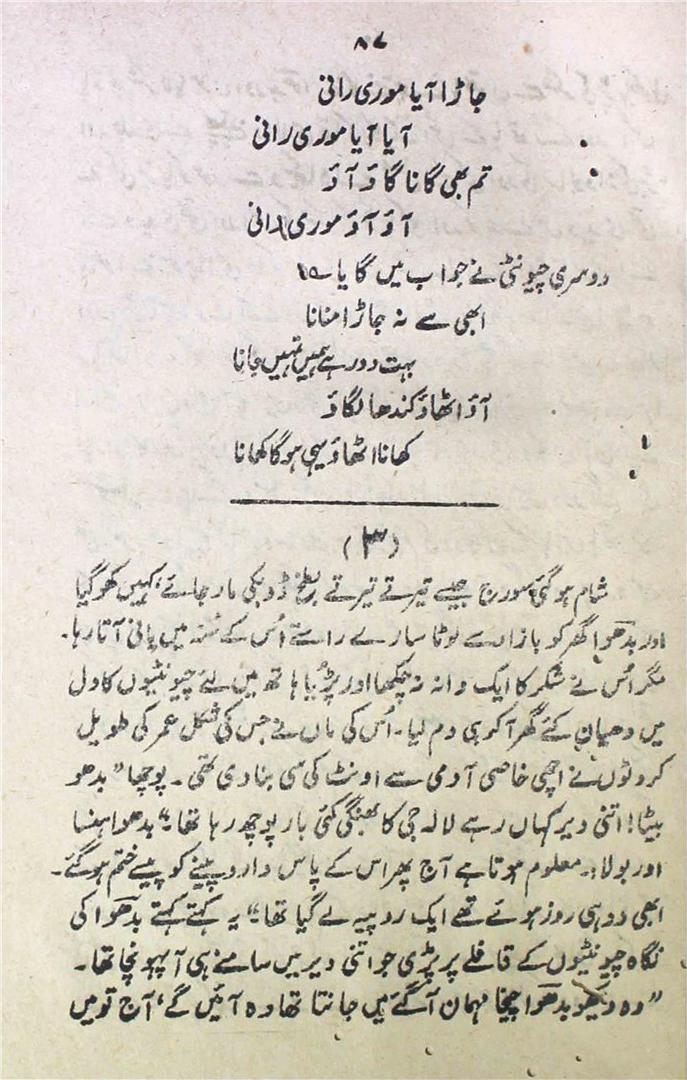 ۸۷
جاڑا آیا موری رانی
آیا آیا موری رانی
تم بھی گانا گاؤ آؤ
آؤ آؤ موری رانی
دوسری چیونٹی نے جواب میں گایا ۔۔
ابھی سے نہ جاڑا منانا
بہت دور ہے ہمیں نہیں جانا
آؤ اٹھاؤ کندھا لگاؤ
کھانا اٹھاؤ یہی ہوگا کھانا
(۳)
شام ہو گئی سورج جیسے تیرتے تیرتے بطخ ڈوبکی مار جائے، کہیں کھو گیا
اور بدھوا گھر کو بازار سے لوٹا سارے راستے اُس کے مُنہ میں پانی آتا رہا۔
مگر اُس نے شکر کا ایک دانہ نہ چکھا اور پڑیا ہاتھ میں لئے چیونٹیوں کا دل
میں دھیان کئے گھر آ کر ہی دم لیا۔ اُس کی ماں نے جس کی شکل عمر کی طویل
کروٹوں نے اچھی خاصی آدمی سے اونٹ کی سی بنا دی تھی۔ پوچھا "بدھو
بیٹا! اتنی دیر کہاں رہے لالہ جی کا بھنگی کئی بار پوچھ رہا تھا۔" بدھوا ہنسا
اور بولا۔ معلوم ہوتا ہے آج پھر اس کے پاس دارو پینے کو پیسے ختم ہو گئے۔
ابھی دو ہی روز ہوئے تھے ایک روپیہ لے گیا تھا" یہ کہتے کہتے بدھوا کی
نگاہ چیونٹیوں کے قافلے پر پڑی جو اتنی دیر میں سامنے ہی آ پہونچا تھا۔
"وہ دیکھو بدھوا چیخا مہمان آگئے میں جانتا تھا وہ آئیں گے، آج تو میں